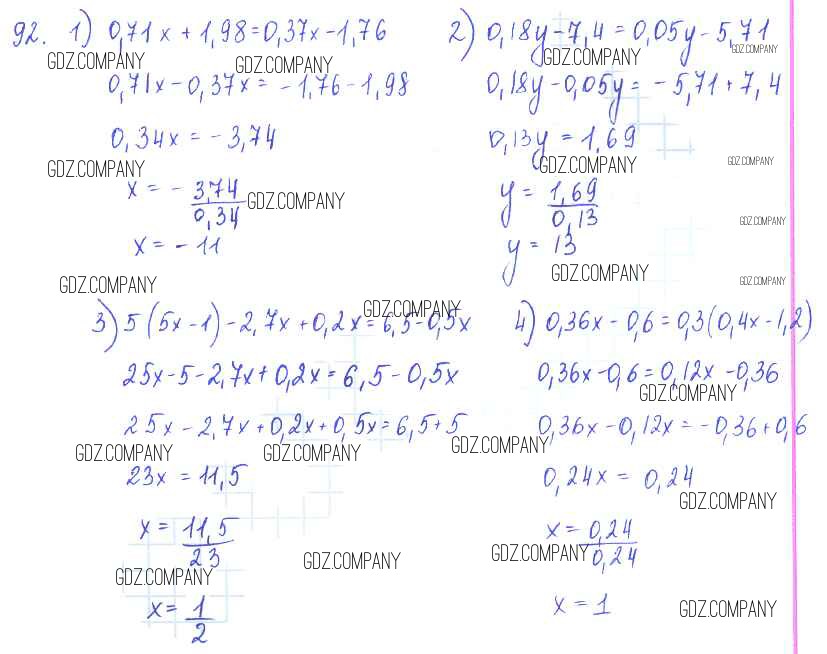 92. 1) 0,71x + 1,98 = 0,37x - 1,76
GDZ.COMPANY GDZ.COMPANY
0,71x - 0,37x = - 1,76 - 1,98
0,34x = - 3,74
GDZ.COMPANY
x = - 3,74/0,34
GDZ.COMPANY
x = - 11
GDZ.COMPANY
2) 0,18y - 7,4 = 0,05y - 5,71
GDZ.COMPANY GDZ.COMPANY
0,18y - 0,05y = - 5,71 + 7,4
0,13y = 1,69
GDZ.COMPANY GDZ.COMPANY
y = 1,69/0,13
GDZ.COMPANY
y = 13
GDZ.COMPANY GDZ.COMPANY
3) 5(5x - 1) - 2,7x + 0,2x = 6,5 - 0,5x
GDZ.COMPANY
25x - 5 - 2,7x + 0,2x = 6,5 - 0,5x
25x - 2,7x + 0,2x + 0,5x = 6,5 + 5
GDZ.COMPANY GDZ.COMPANY
23x = 11,5
x = 11,5/23
GDZ.COMPANY GDZ.COMPANY
x = 1/2
4) 0,36x - 0,6 = 0,3(0,4x - 1,2)
0,36x - 0,6 = 0,12x - 0,36
GDZ.COMPANY
0,36x - 0,12x = - 0,36 + 0,6
GDZ.COMPANY
0,24x = 0,24
GDZ.COMPANY
x = 0,24/0,24
GDZ.COMPANY
x = 1
GDZ.COMPANY